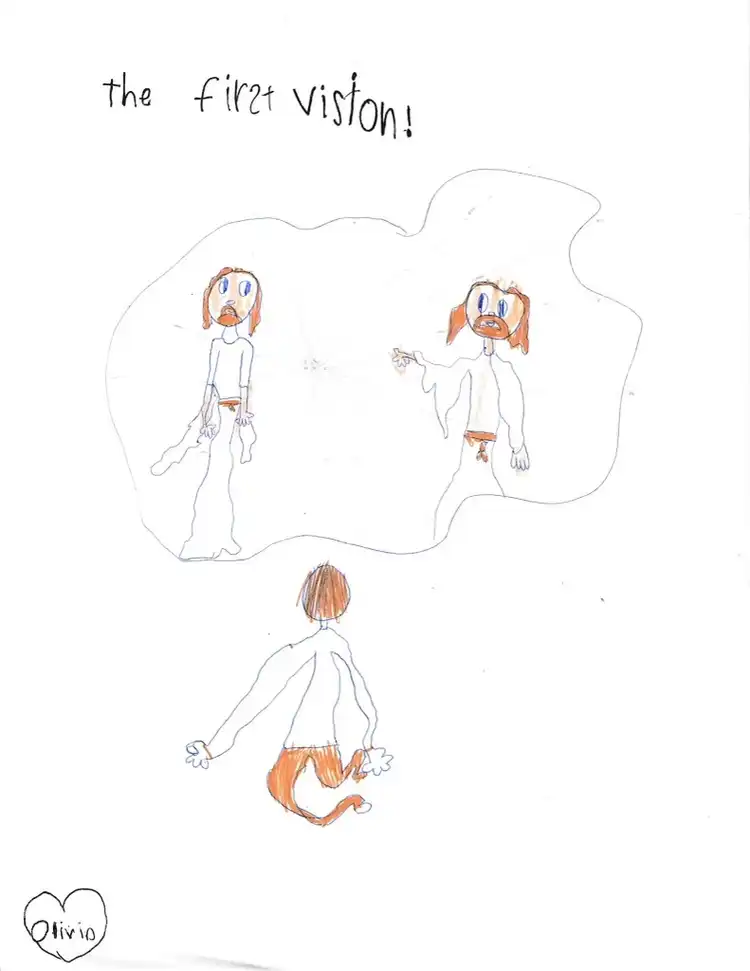 the first viston!
Olivia